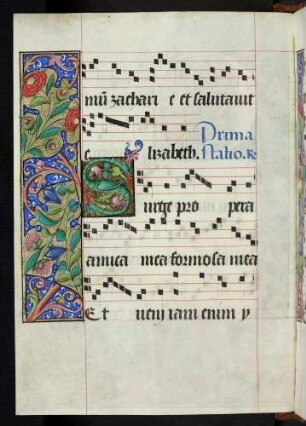 mū zachari e et salutavit
e lizabeth. Prima
statio. R
Surge pro pera
amica mea formosa mea
Et veni iam enim y